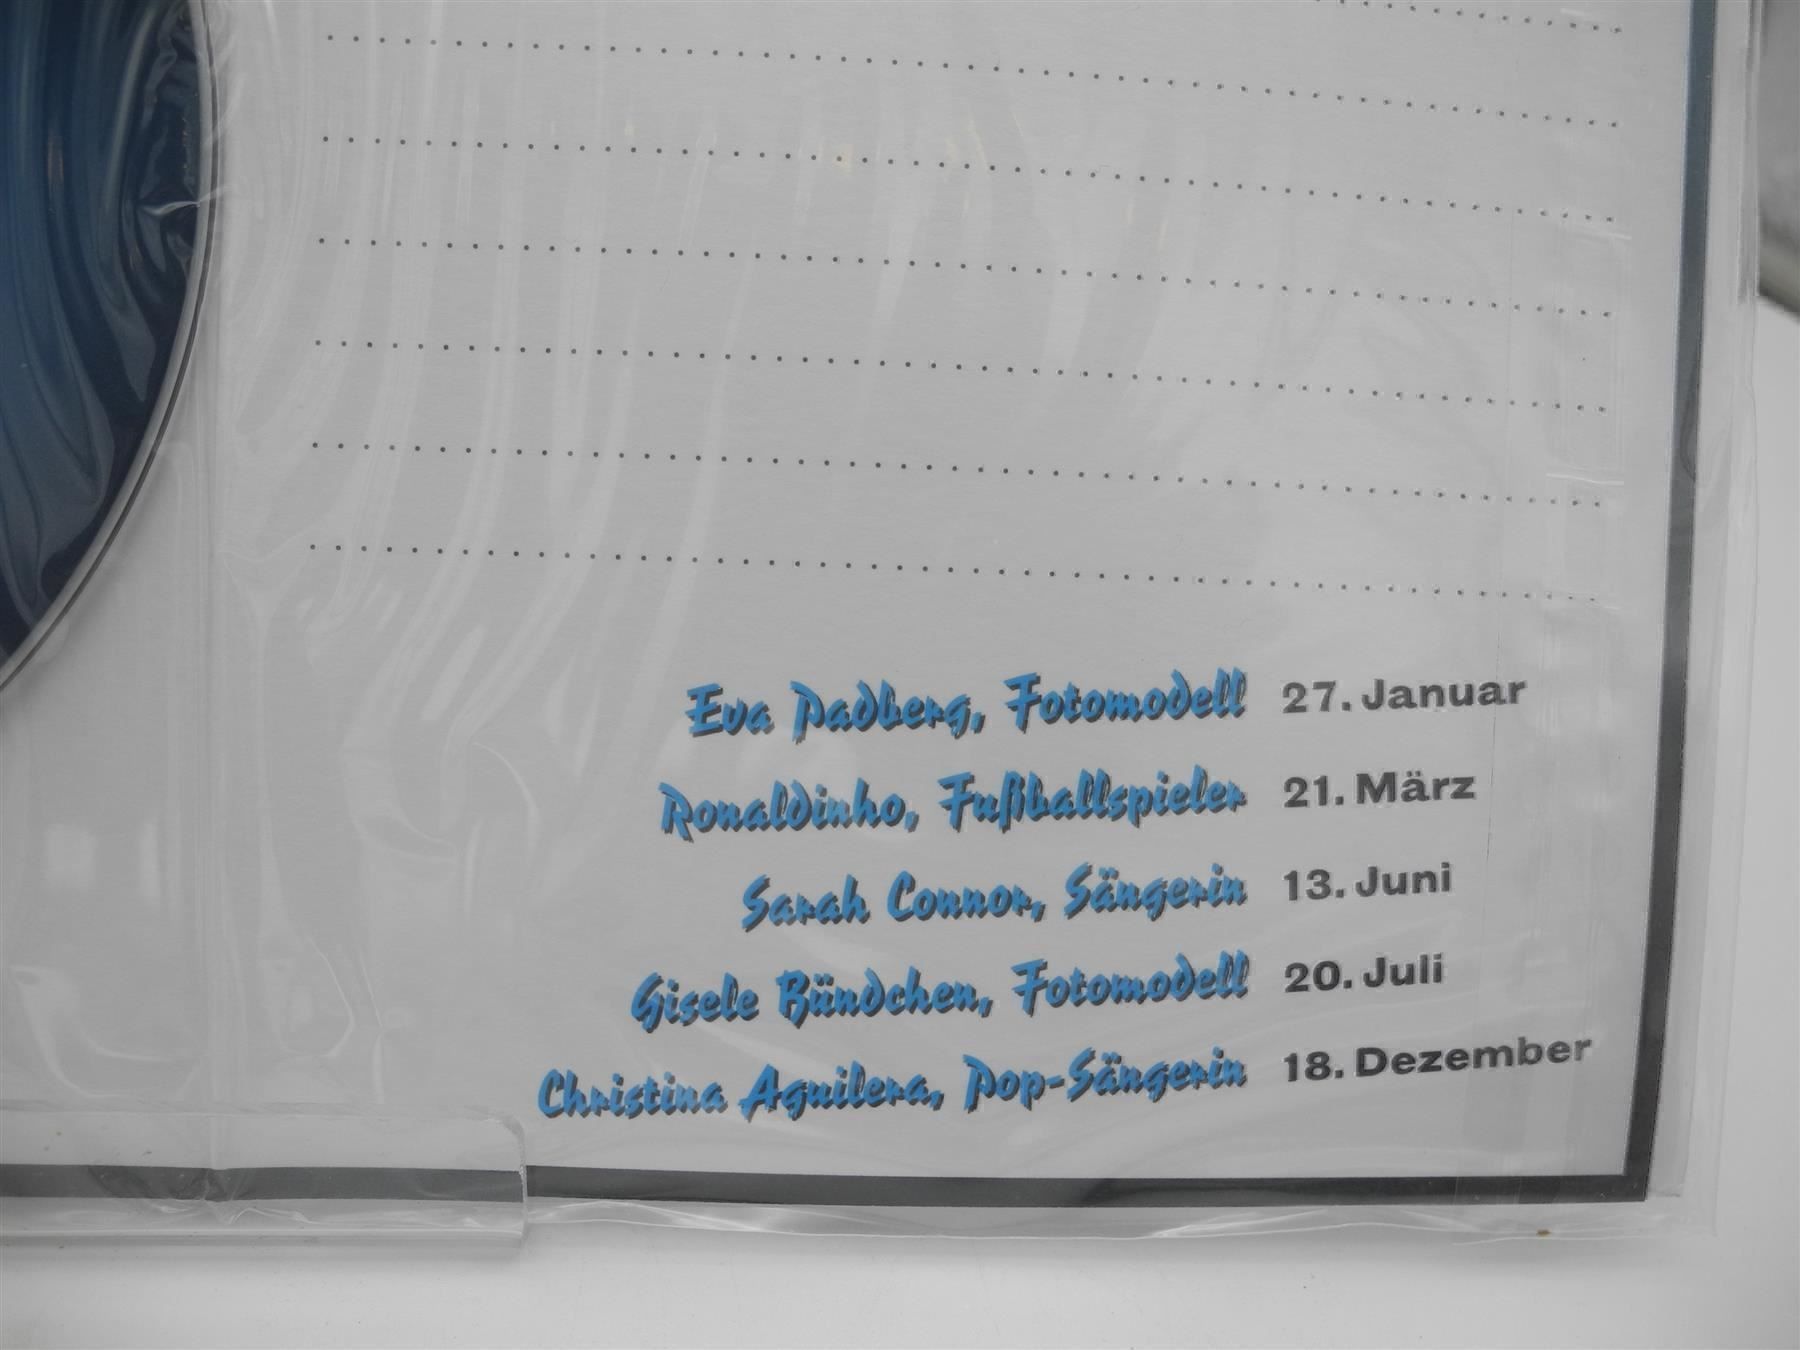 Eva Padberg, Fotomodell 27. Januar
Ronaldinho, Fußballspieler 21. März
Sarah Connor, Sängerin 13. Juni
Gisele Bündchen, Fotomodell 20. Juli
Christina Aguilera, Pop-Sängerin 18. Dezember